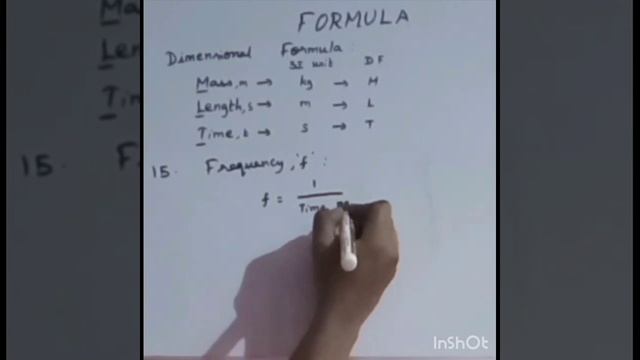 FORMULA
Dimensional Formula:
SI unit DF
Mass, m → kg → M
Length, s → m → L
Time, t → s → T
15. Frequency, 'f':
1
f =
Time
InShOt